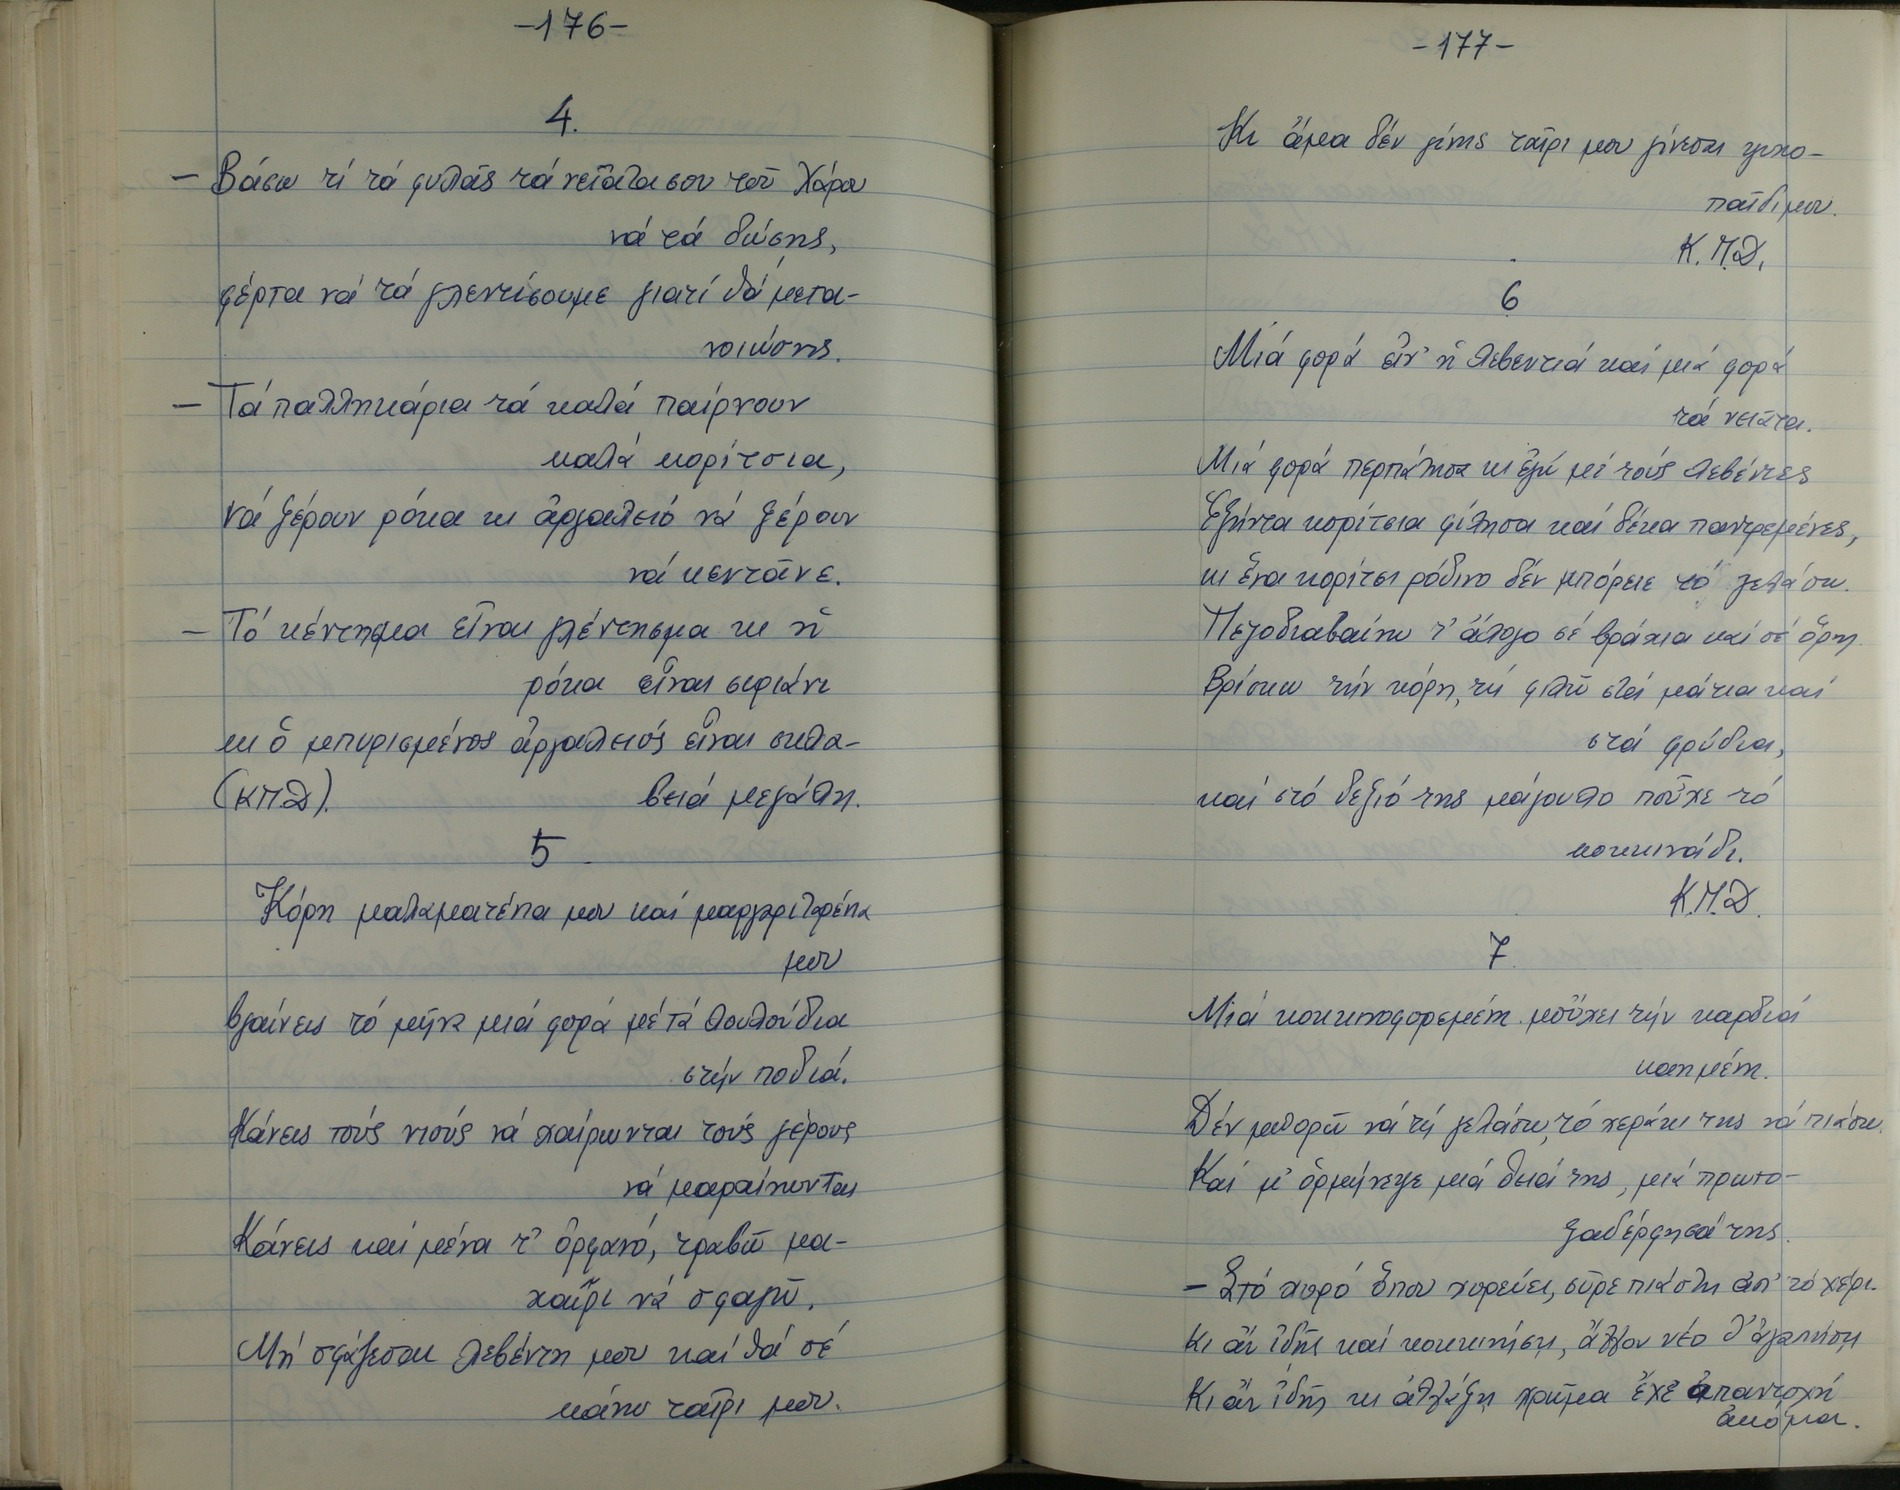 -176-
4.
- Βάσω τί τά φυλᾶς τά νειᾶτα σου τοῦ Χάρου
νά τά δώσῃς,
φέρτα νά τά γλεντίσουμε γιατί θά μετα-
νοιώσῃς.
- Τά παλληκάρια τά καλά παίρνουν
καλά κορίτσια,
νά ξέρουν ρόκα κι ἀργαλειό νά ξέρουν
νά κεντᾶνε.
- Τό κέντησμα εἶναι γλέντησμα κι ἡ
ρόκα εἶναι σεριάνι
κι ὁ μπυρισμένος ἀργαλειός εἶναι σκλα-
(Κ.Π.Δ). βειά μεγάλη.
5
Κόρη μαλαματένια μου καί μαργαριταρένια
μου
βγαίνεις τό μῆνα μιά φορά μέ τά λουλούδια
στήν ποδιά.
Κάνεις τούς νιούς νά χαίρωνται τούς γέρους
νά μαραίνωνται
Κάνεις καί μένα τ' ὀρφανό, τραβῶ μα-
χαῖρι νά σφαγῶ.
Μή σφάζεσαι λεβέντη μου καί θά σέ
κάνω ταῖρι μου.
-177-
Κι ἅμα δέν γίνῃς ταῖρι μου γίνεσαι ψυχο-
παῖδι μου.
Κ.Π.Δ.
6
Μιά φορά εἶν' ἡ λεβεντιά καί μιά φορά
τά νειᾶτα.
Μιά φορά περπάτησα κι ἐγώ μέ τούς λεβέντες
Ἑξήντα κορίτσια φίλησα καί δέκα παντρεμένες,
κι ἕνα κορίτσι ρόδινο δέν μπόρειε τό γελάσω.
Πεζοδιαβαίνω τ' ἄλογο σέ βράχια καί σέ ὄρη
Βρίσκω τήν κόρη, τή φιλῶ στά μάτια καί
στά φρύδια,
καί στό δεξιό της μάγουλο ποὖχε τό
κοκκινάδι.
Κ.Π.Δ.
7
Μιά κοκκινοφορεμένη μοὔχει τήν καρδιά
καημένη.
Δέν μπορῶ νά τή γελάσω, τό χεράκι της νά πιάσω.
Καί μ' ὁρμήνεψε μιά θειά της, μιά πρωτο-
ξαδέρφησά της.
- Στό χορό ὅπου χορεύει, σῦρε πιάστη ἀπ' τό χέρι.
Κι ἄν ἰδῇς καί κοκκινήσῃ, ἄλλον νέο θ' ἀγαπήσῃ
Κι ἄν ἰδῇς κι ἀλλάξῃ χρῶμα ἔχε ἀπαντοχή
ἀκόμα.